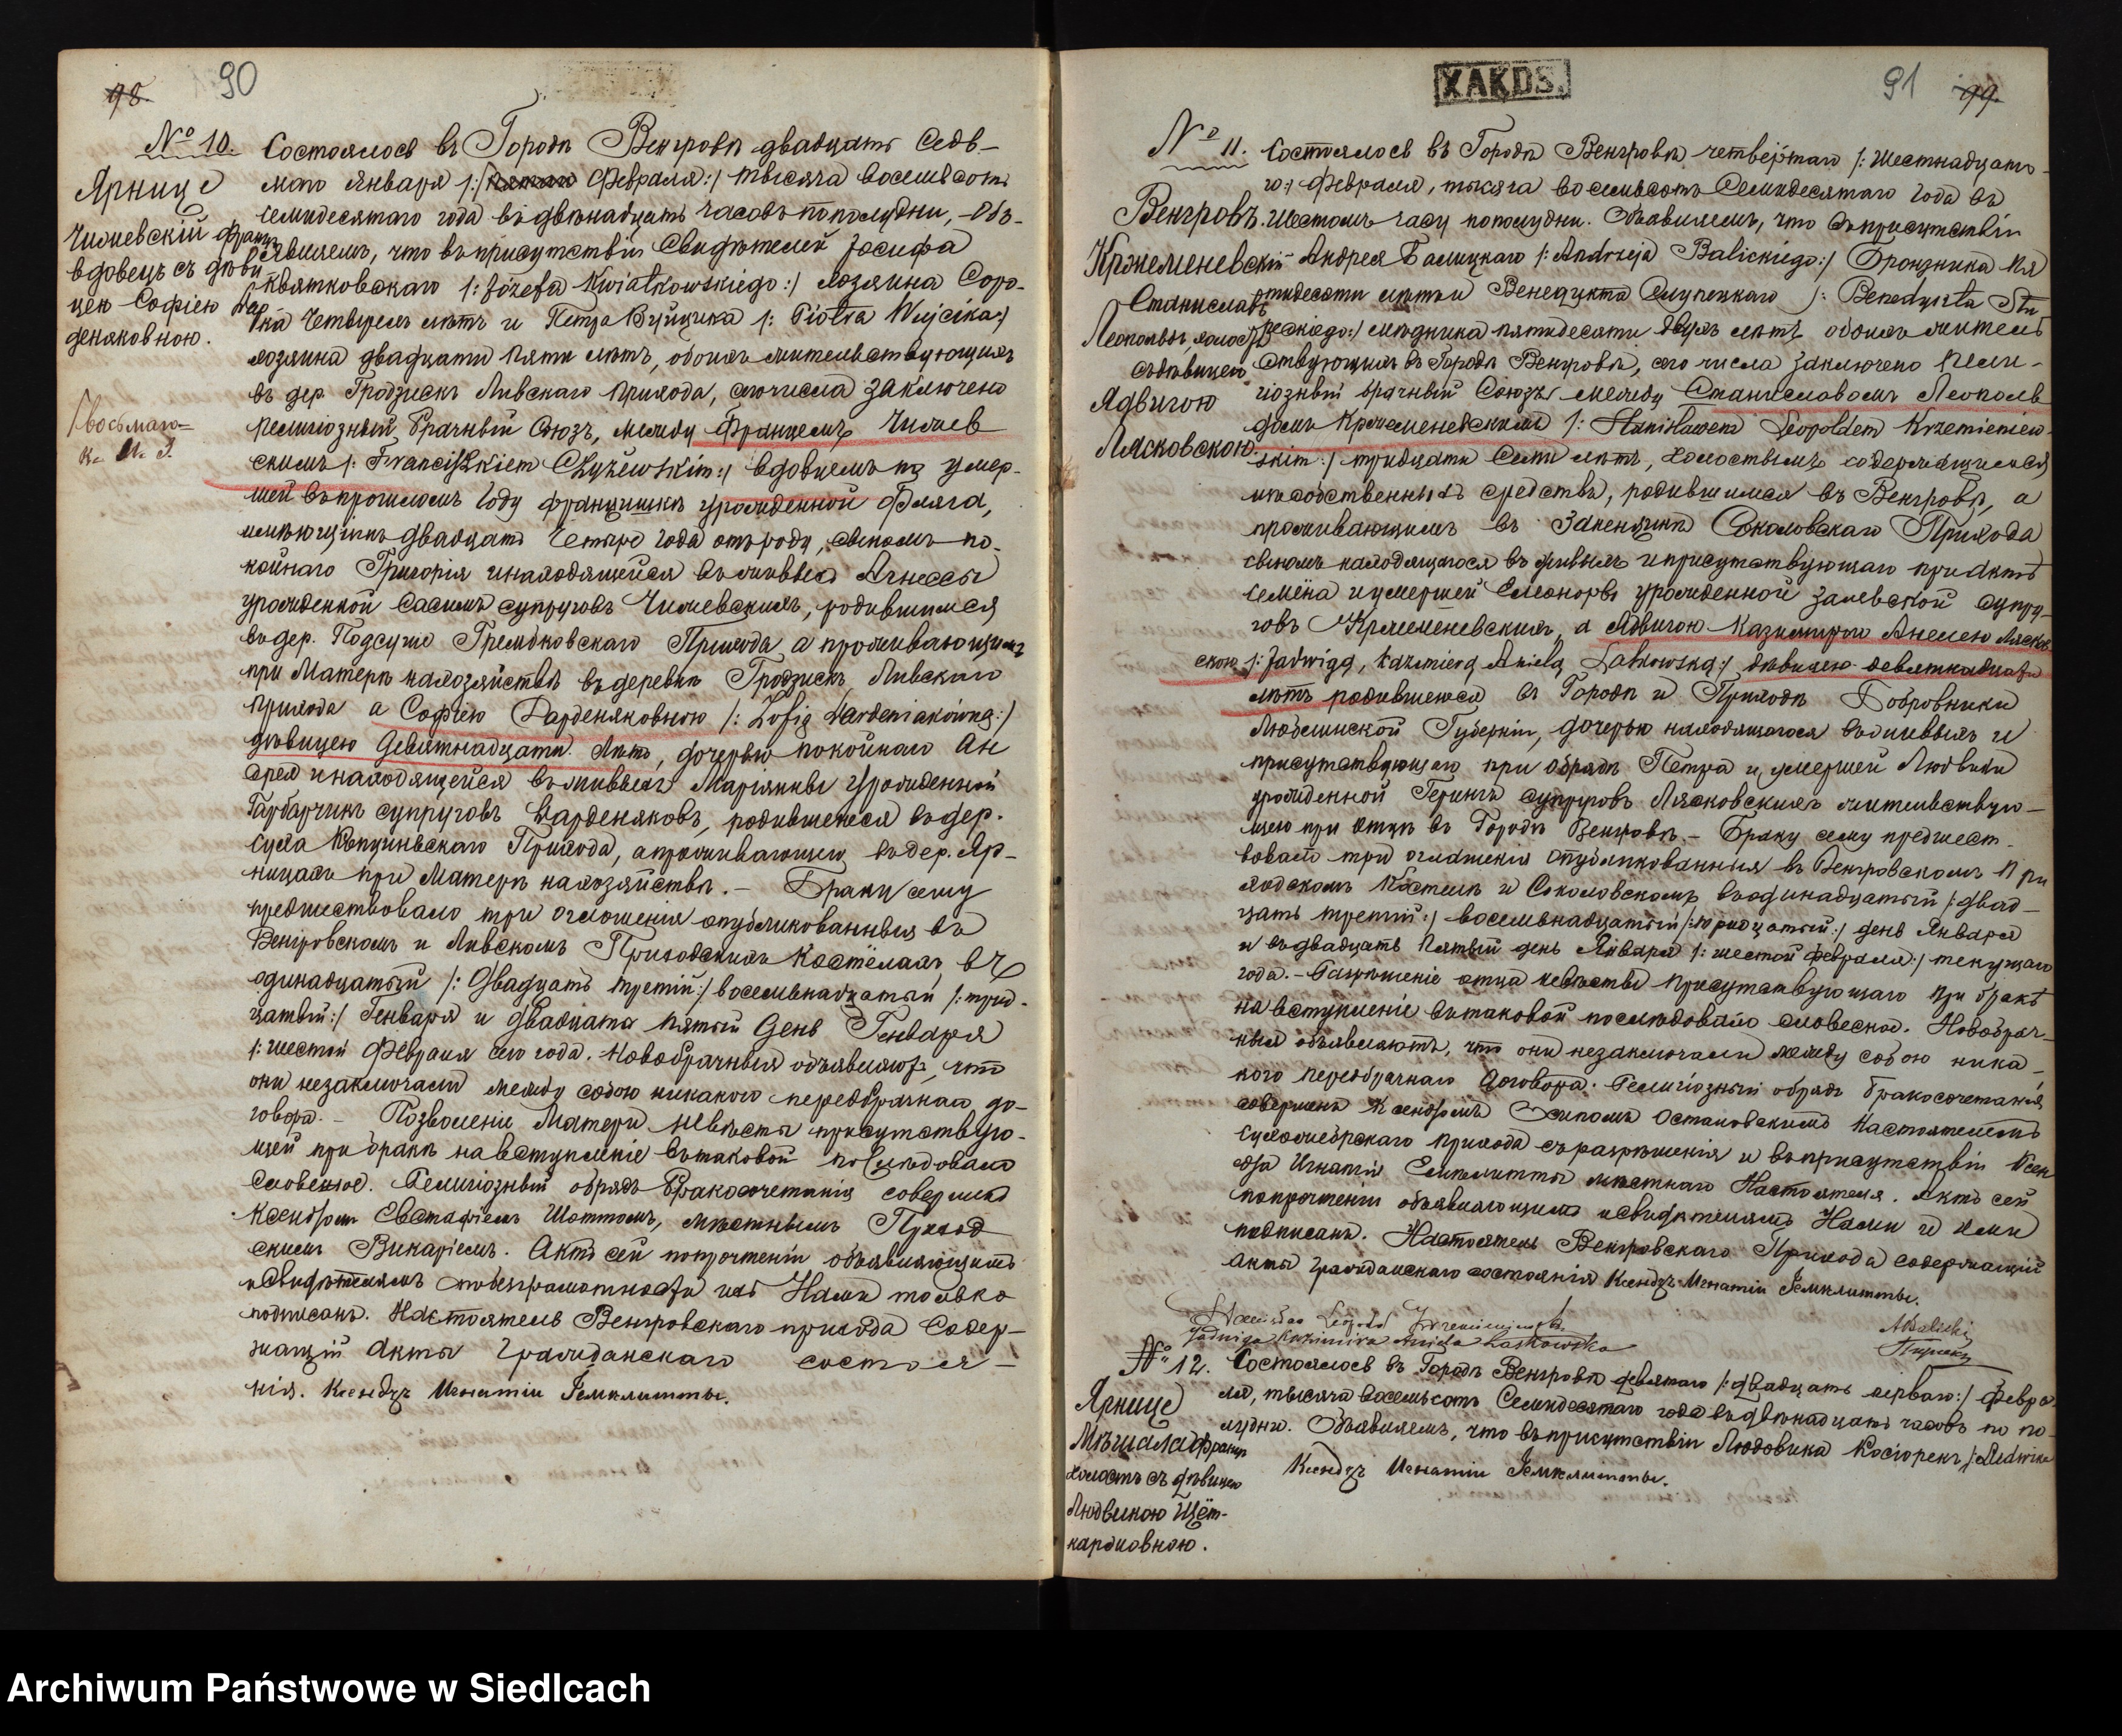 98. 90
№ 10.
Ярнице
Чижевскій Франц.
вдовецъ съ дѣви
цею Софіею Вар
деняковною.
восьмаго
К. И. Я.
Состоялось въ Городѣ Венгровѣ двадцать седь-
маго Января /: Февраля:/ тысяча восемьсотъ
семидесятаго года въ двѣнадцать часовъ пополудни, - Объ-
являемъ, что въ присутствіи Свидѣтелей Іосифа
Квятковскаго /: Józefa Kwiatkowskiego:/ хозяина Соро-
ка Четырехъ лѣтъ и Петра Вуйцика /: Piotra Wujcika:/
хозяина двадцати пяти лѣтъ, обоихъ жительствующихъ
въ дер. Гродзискъ Ливскаго Прихода, сего числа заключено
Религіозный Брачный Союзъ, между Францемъ Чижев
скимъ /: Franciszkiem Chyżewskim:/ вдовцемъ по умер-
шей въ прошломъ году Францишкѣ урожденной Фляга,
имѣющимъ двадцать Четыре года отъ роду, сыномъ по-
койнаго Григорія и находящейся въ живыхъ Агнессы
урожденной Сасимъ супруговъ Чижевскихъ, родившимся
въ дер. Подсуше Гремдковскаго Прихода а проживающимъ
при Матери на хозяйствѣ въ деревнѣ Гродзискъ Ливскаго
Прихода а Софіею Варденяковною /: Zofią Wardeniakówną:/
дѣвицею Девятнадцати Лѣтъ, дочерью покойнаго Ан
дрея и находящейся въ живыхъ Маріянны Урожденной
Гарбарчикъ супруговъ Варденяковъ, родившеюся въ дер.
Суха Прихода, а проживающею въ дер. Яр-
ницахъ при Матери на хозяйствѣ. - Браку сему
предшествовало три оглашенія опубликованныя въ
Венгровскомъ и Ливскомъ Приходскихъ Костёлахъ въ
одинадцатый /: Двадцать третій:/ восемьнадцатый /: трид-
цатый:/ Генваря и двадцать пятый День Генваря
/: шестой Февраля сего года. Новобрачныя объявляютъ, что
они незаключали между собою никакого передбрачнаго до-
говора. - Позволеніе Матери невѣсты присутствую-
щей при бракѣ на вступленіе въ таковой послѣдовало
словесное. Религіозный обрядъ Бракосочетанія совершено
Ксендзомъ Евстафіемъ Шоттомъ, мѣстнымъ Приход
скимъ Викаріемъ. Актъ сей по прочтеніи объявляющимъ
и Свидѣтелямъ по безграмотности ихъ Нами только
подписанъ. Настоятель Венгровскаго прихода Содер-
жащій Акты Гражданскаго состоя-
нія. Ксендзъ Игнатіи Гемклитты.
XAKDS.
91 99.
№ 11.
Венгровъ.
Кржеменевскій
Станиславъ
Леопольдъ, холост.
съ дѣвицею
Ядвигою
Лясковскою.
Состоялось въ Городѣ Венгровѣ четвёртаго /: Шестнадцата-
го:/ Февраля, тысяча восемьсотъ Семидесятаго Года въ
шестомъ часу пополудни. Объявляемъ, что въ присутствіи
Андрея Балицкаго /: Andrzeja Balickiego:/ Бронзника Пя
тидесяти лѣтъ и Бенедикта Слупецкаго /: Benedykta Słu
peckiego:/ мѣдника пятидесяти двухъ лѣтъ обоихъ житель
ствующихъ въ Городѣ Венгровѣ, сего числа заключено Рели-
гіозный брачный Союзъ между Станиславомъ Леополь
домъ Кржеменевскимъ /: Stanisławem Leopoldem Krzemieniew-
skim:/ тридцати Семи лѣтъ, холостымъ содержащимся
изъ собственныхъ средствъ, родившимся въ Венгровѣ, а
проживающимъ въ Соколовскаго Прихода
сыномъ находящагося въ живыхъ и присутствующаго при Актѣ
Семёна и умершей Елеоноры урожденной Залевской супру-
говъ Кржеменевскихъ, а Ядвигою Казимирою Анелею Лясков
скою /: Jadwigą, Kazimierą Anielą Laskowską:/ дѣвицею девятнадцати
лѣтъ родившеюся въ Городѣ и Приходѣ Бобровники
Люблинской Губерніи, дочерью находящагося въ живыхъ и
присутствующаго при обрядѣ Петра и умершей Людвики
урожденной Герингъ супруговъ Лясковскихъ жительствую-
щею при отцѣ въ Городѣ Венгровѣ. - Браку сему предшест-
вовало три оглашенія опубликованныя въ Венгровскомъ При
ходскомъ Костелѣ и Соколовскомъ въ одинадцатый /: двад-
цать третій:/ восемьнадцатый /: тридцатый:/ день Января
и въ двадцать Пятый день Января /: шестой Февраля:/ текущаго
года. - Разрѣшеніе отца невѣсты присутствующаго при бракѣ
на вступленіе въ таковой послѣдовало словесное. Новобрач-
ныя объявляютъ, что они незаключали между собою ника-
кого передбрачнаго Договора. Религіозный обрядъ бракосочетанія
совершенъ Ксендзомъ Остановскимъ Настоятелемъ
Сухожебрскаго Прихода съ разрѣшенія и въ присутствіи Ксен
дза Игнатія Гемклитты мѣстнаго Настоятеля. Актъ сей
по прочтеніи объявляющимъ и Свидѣтелямъ Нами и ими
подписанъ. Настоятель Венгровскаго Прихода содержащій
Акты гражданскаго состоянія Ксендзъ Игнатіи Гемклитты.
Stanisław Leopold Krzemieniewski
Jadwiga Kazimira Aniela Laskowska
ABalicki
№ 12.
Ярнице
Мѣшала Франц.
холостъ съ дѣвицею
Людвикою Щёт-
карковною.
Состоялось въ Городѣ Венгровѣ девятаго /: двадцать перваго:/ Февра-
ля, тысяча восемьсотъ Семидесятаго года въ двѣнадцать часовъ по по-
лудни. Объявляемъ, что въ присутствіи Людовика Косіорекъ /: Ludwika
Ксендзъ Игнатіи Гемклитты.
Archiwum Państwowe w Siedlcach